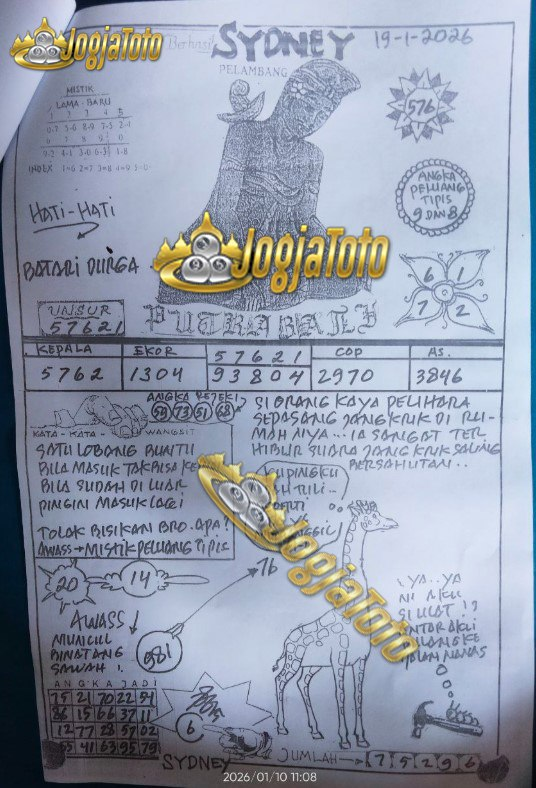 JogjaToto
Berhasil
SYDNEY
19-1-2026
PELAMBANG
MISTIK
LAMA - BARU
576
INDEX 1=6 2=7 3=8 4=9 5=0
ANGKA
PELUANG
TIPIS
9 DAN 8
HATI-HATI
BATARI DURGA
JogjaToto
6 1
7 2
UNSUR
57621
PUTRA BALI
KEPALA EKOR 57621 COP AS.
5762 1304 93804 2970 3846
ANGKA REJEKI
59 73 51 68
KATA - KATA - WANGSIT
SATU LOBANG BUNTU
BILA MASUK TAK BISA KE
BILA SUDAH DI LUAR
PINGIN MASUK LAGI
TOLAK BISIKAN BRO. APA?
AWASS → MISTIK PELUANG TIPIS
SI ORANG KAYA PELIHARA
SEPASANG JANGKRIK DI RU-
MAH NYA... IA SANGAT TER
HIBUR SUARA JANGKRIK SALING
BERSAHUTAN..
KUPINGKU
JogjaToto
20
14
76
AWASS
MUNCUL
BINATANG
SAWAH !
981
YA..YA
NI AKU
SI ULAT !?
ANGKA JADI
75 21 70 22 54
86 15 66 37 11
12 77 28 57 02
55 41 63 95 79
6
SYDNEY
JUMLAH → 7 5 2 9 6
2026/01/10 11:08